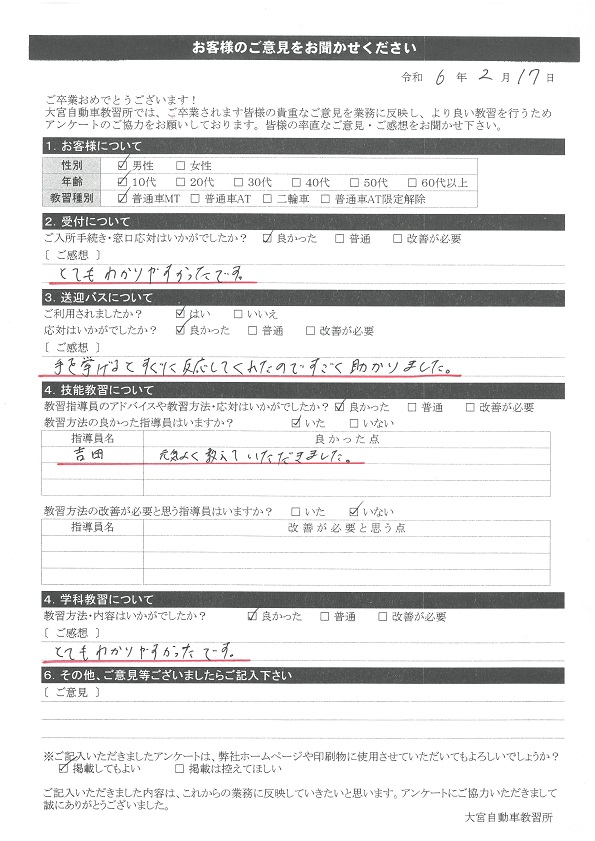 お客様のご意見をお聞かせください
令和 6 年 2 月 17 日
ご卒業おめでとうございます!
大宮自動車教習所では、ご卒業されます皆様の貴重なご意見を業務に反映し、より良い教習を行うため
アンケートのご協力をお願いしております。皆様の率直なご意見・ご感想をお聞かせ下さい。
1. お客様について
性別 ☑男性 □女性
年齢 ☑10代 □20代 □30代 □40代 □50代 □60代以上
教習種別 ☑普通車MT □普通車AT □二輪車 □普通車AT限定解除
2. 受付について
ご入所手続き・窓口応対はいかがでしたか? ☑良かった □普通 □改善が必要
[ ご感想 ]
とてもわかりやすかったです。
3. 送迎バスについて
ご利用されましたか? ☑はい □いいえ
応対はいかがでしたか? ☑良かった □普通 □改善が必要
[ ご感想 ]
手を挙げるとすぐに反応してくれたのですごく助かりました。
4. 技能教習について
教習指導員のアドバイスや教習方法・応対はいかがでしたか? ☑良かった □普通 □改善が必要
教習方法の良かった指導員はいますか? ☑いた □いない
指導員名 良かった点
吉田 元気よく教えていただきました。
教習方法の改善が必要と思う指導員はいますか? □いた ☑いない
指導員名 改善が必要と思う点
4. 学科教習について
教習方法・内容はいかがでしたか? ☑良かった □普通 □改善が必要
[ ご感想 ]
とてもわかりやすかったです。
6. その他、ご意見等ございましたらご記入下さい
[ ご意見 ]
※ご記入いただきましたアンケートは、弊社ホームページや印刷物に使用させていただいてもよろしいでしょうか?
☑掲載してもよい □掲載は控えてほしい
ご記入いただきました内容は、これからの業務に反映していきたいと思います。アンケートにご協力いただきまして
誠にありがとうございました。
大宮自動車教習所